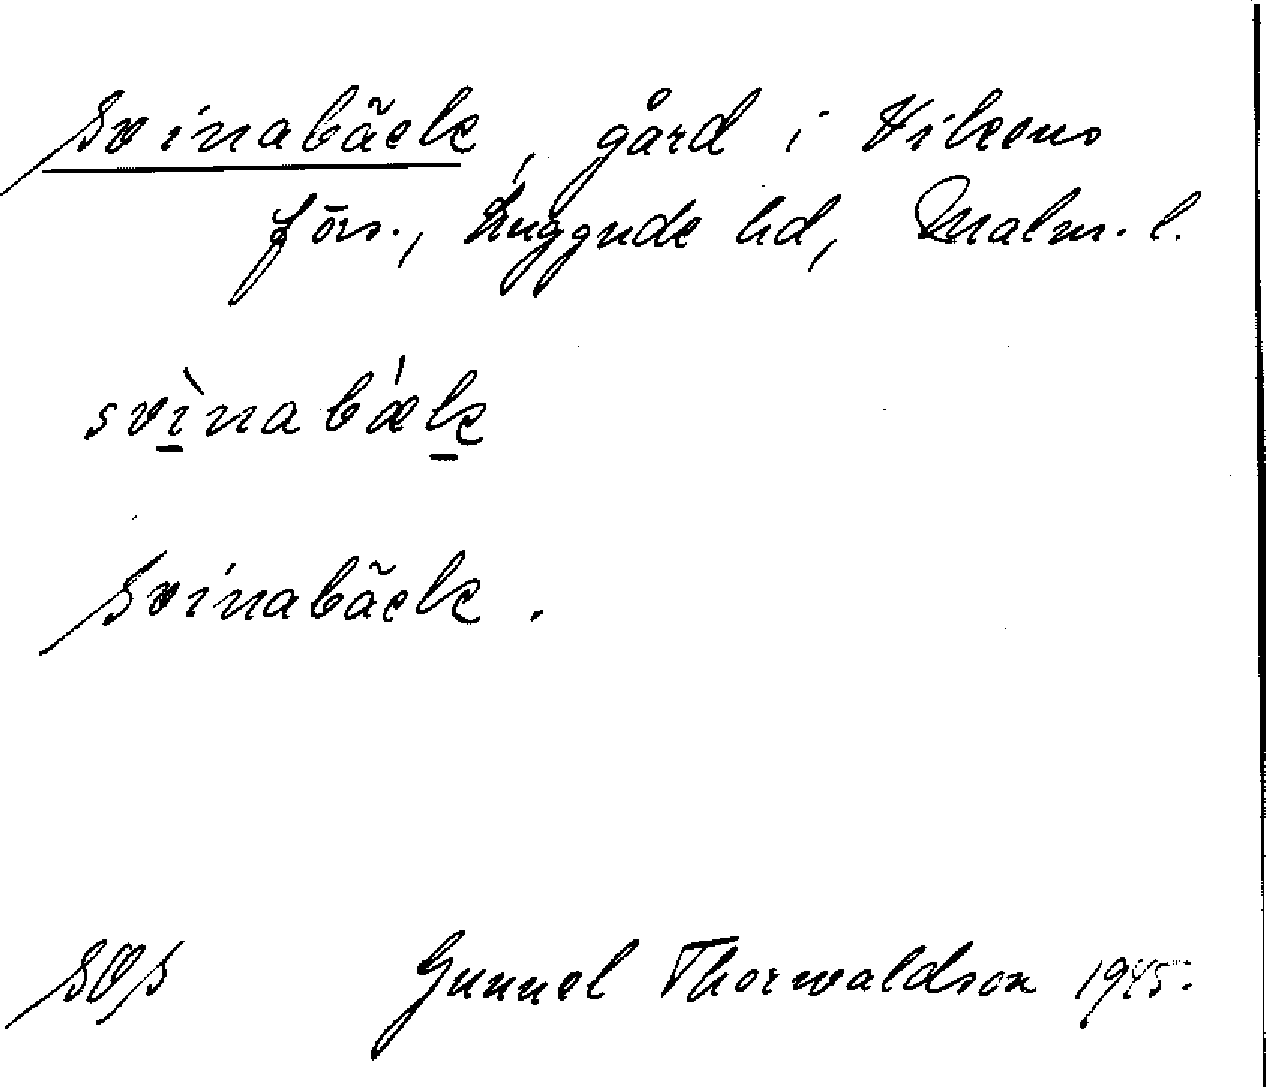 Svinabäck, gård i Vikens
förs., Luggude hd, Malm. l.
svìnabǽk
Svinabäck.
SOS Gunnel Thorwaldson 1945.